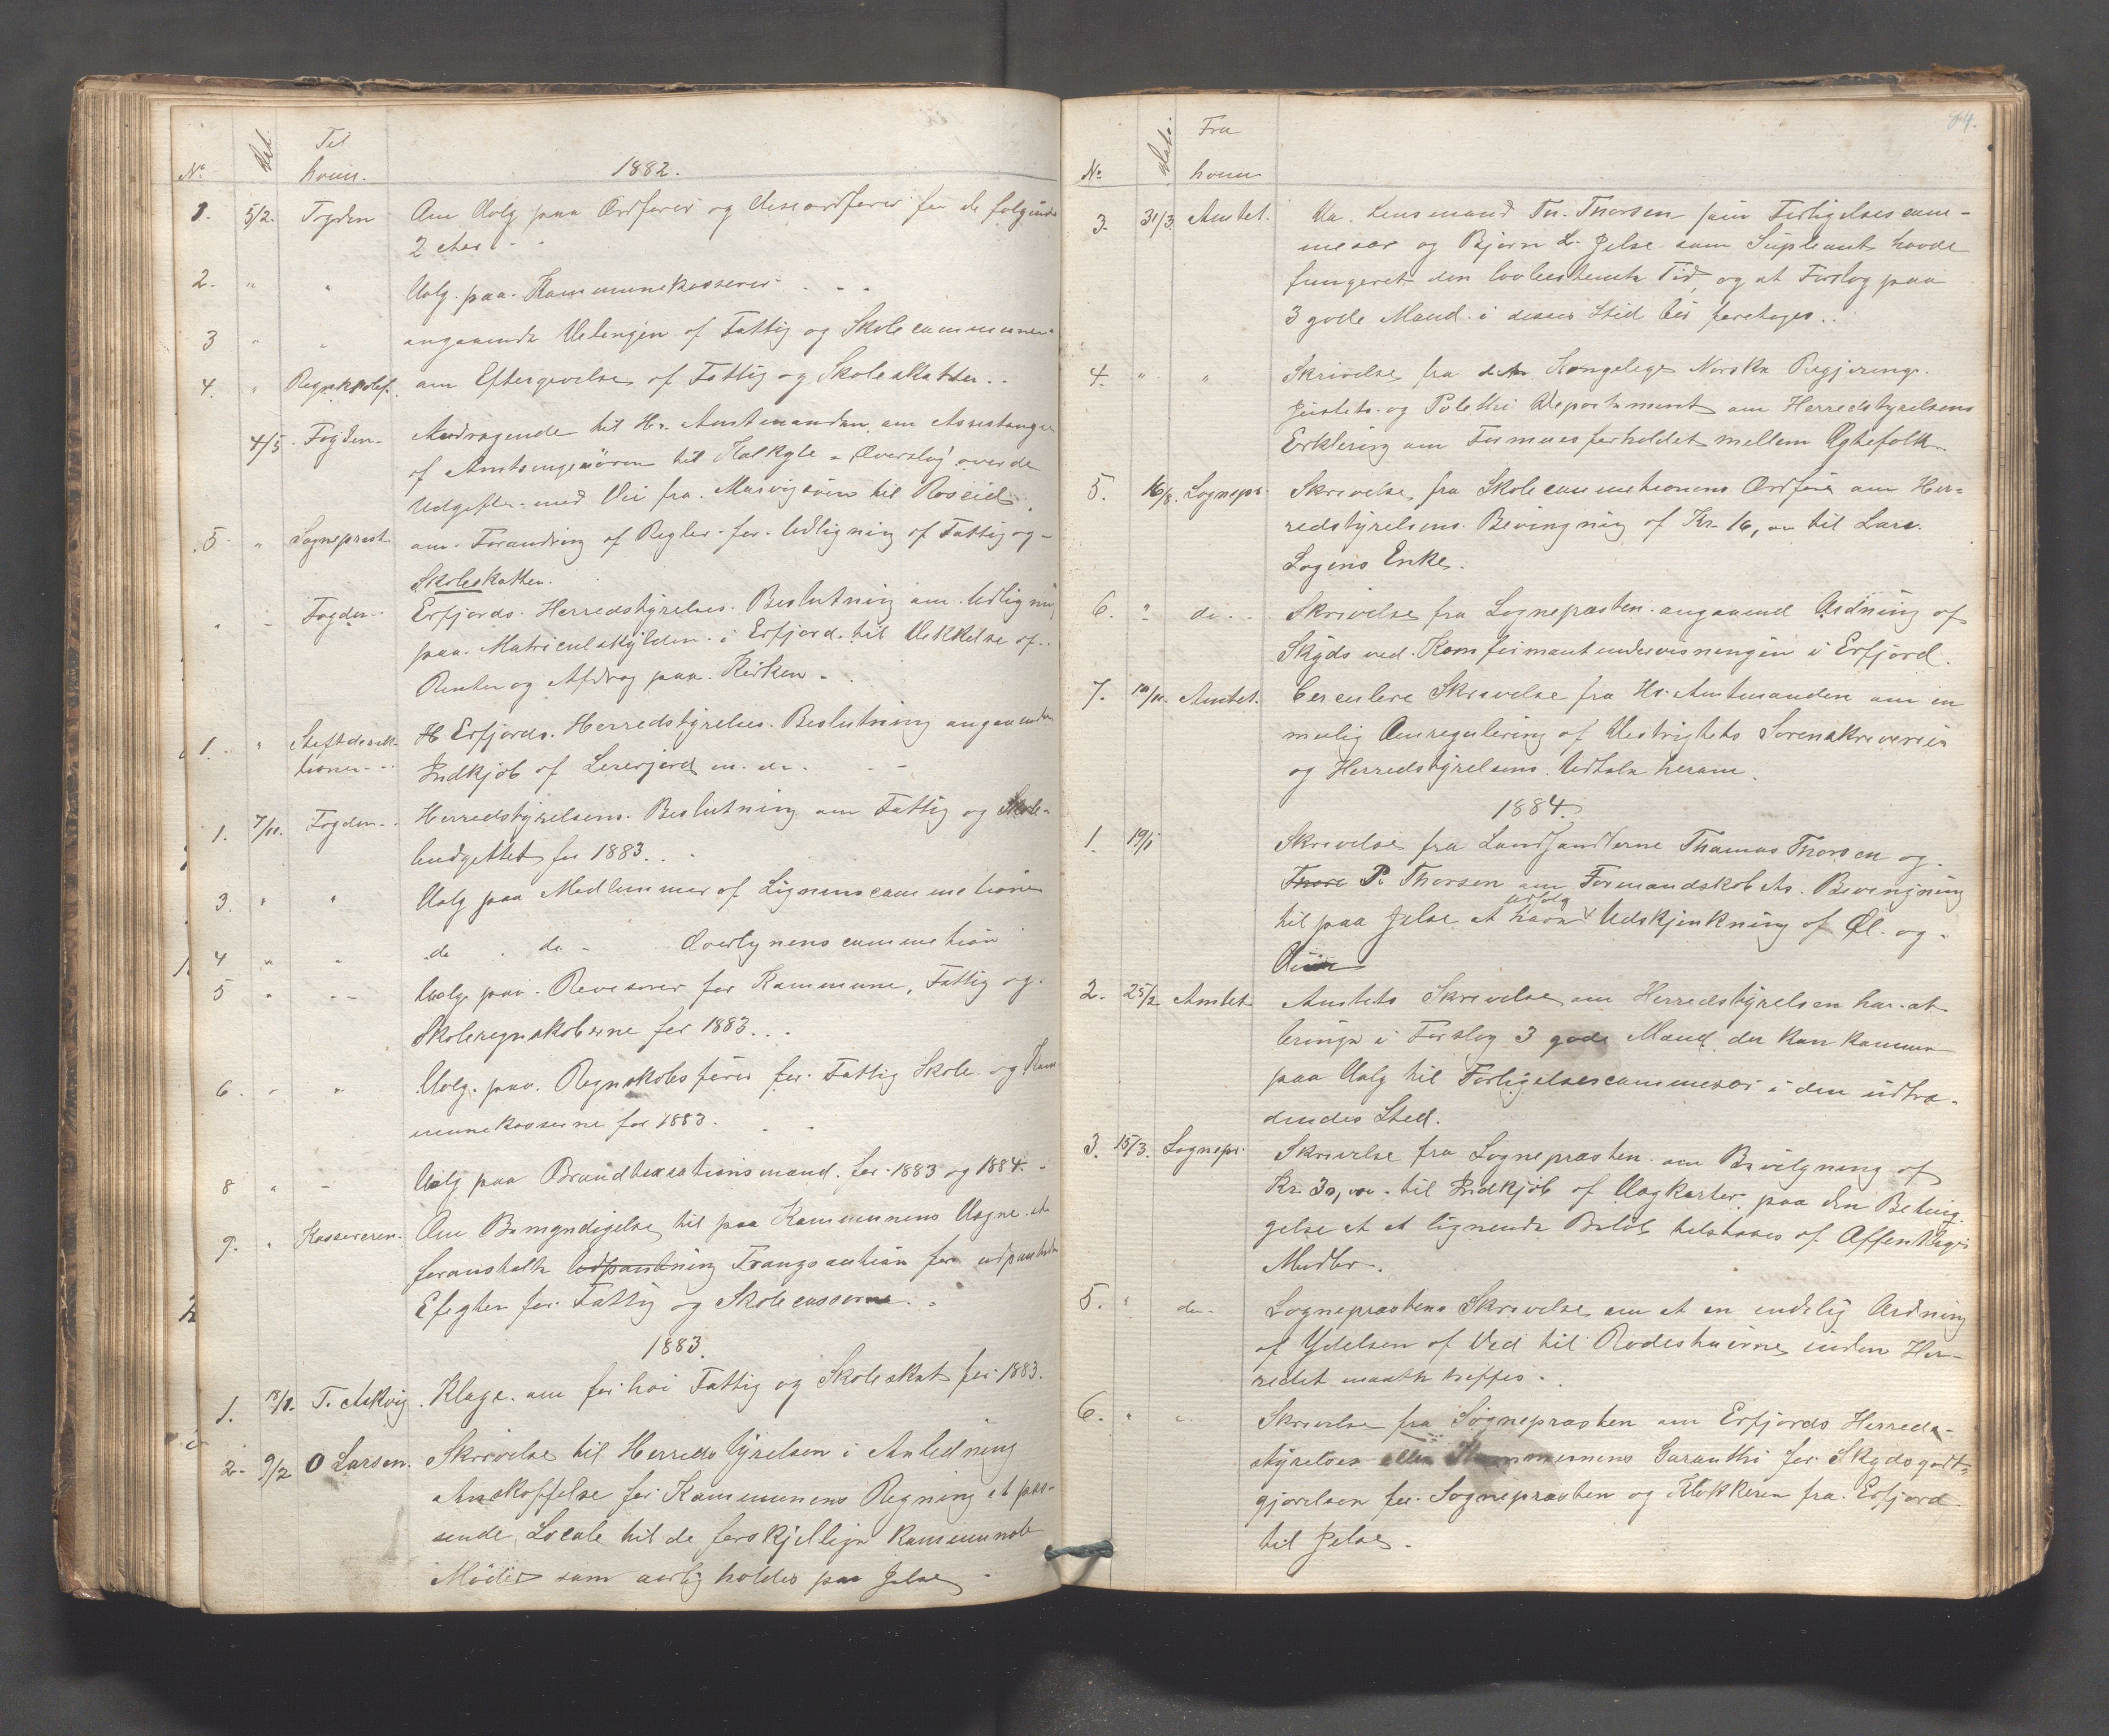 No. Dat. Til hvem. 1882.
1. 5/2. Fogden Om Valg paa Ordfører og Viseordfører for de følgende
2 Aar.
2. " " Valg paa Kommunekasserer
3 " " angaaende Velingen af Fattig og Skolecommissionen
4. " Regnskabsf. om Eftergivelse af Fattig og Skoleskatter.
4/5 Fogden Andragende til Hr. Amtmanden om Assistange
af Amtsingeniøren til Kalkyle - Overslag over de
Udgifter med Vei fra Marvigsøen til Roseid.
5 " Sogneprest om Forandring af Regler for Udligning af Fattig og
Skoleskatten.
" " Fogden Erfjords Herredstyrelses Beslutning om Udligning
paa Matriculskylden i Erfjord til Dekkelse af
Renter og Afdrag paa Kirken
1. " Stiftdirektionen H Erfjords Herredstyrelses Beslutning angaaende
Indkjøb af Lererjord m. m.
1. 7/11. Fogden Herredstyrelsens Beslutning om Fattig og Skole-
budgettet for 1883.
3. " " Valg paa Medlemmer af Ligningscommetionen
4 " " do do Overlignenscommetion
5 " " Valg paa Revisorer for Kommune, Fattig og
Skoleregnskaberne for 1883.
6. " " Valg paa Regnskabsfører for Fattig Skole og Kom
munekasserne for 1883.
8 " " Valg paa Brandtaxationsmænd for 1883 og 1884.
9. " Kassereren. Om Bemyndigelse til paa Kommunens Vegne at
foranstalte Udpantning Trangsauction for udpantede
Efegter for Fattig og Skolecasserne.
1883.
1. 18/1. T. Askvig. Klage om for høi Fattig og Skoleskat for 1883.
2. 9/2 O Larsen. Skrivelse til Herredstyrelsen i Anledning
Anskaffelse for Kommunens Regning et pas-
sende Locale til de forskjellige Kommunale
Møder som aarlig holdes paa Jelse
84.
No. Dato. Fra hvem
3. 31/3 Amtet. Lensmand Tn. Thorsen som Forligelsescom-
mesær og Bjørn L. Jelse som Supleant havde
fungeret den lovbestemte Tid, og at Forslag paa
3 gode Mænd i disses Sted bør foretages.
4. " " Skrivelse fra det Kongelige Norske Regjerings
Justits og Politi Departement om Herredstyrelsens
Erklering om Formuesforholdet mellem Egtefolk
5. 16/8. Sognepr. Skrivelse fra Skolecommetionens Ordfører om Her-
redstyrelsens Bevingning af Kr. 16,00 til Lars
Logens Enke.
6. " do. Skrivelse fra Sognepresten angaaend Ordning af
Skyds ved Komfirmantundervisningen i Erfjord.
7. 10/11. Amtet. Cerculere Skrivelse fra Hr. Amtmanden om en
mulig Omregulering af Sorenskriverier
og Herredstyrelsens Udtale herom.
1884.
1. 19/1 Skrivelse fra Landhandlerne Thomas Thorsen og
Thore P. Thorsen om Formandskabets Bevingning
til paa Jelse at have udsalg Udskjenkning af Øl og
Viin
2. 25/2 Amtet Amtets Skrivelse om Herredstyrelsen har at
bringe i Forslag 3 gode Mænd der kan komme
paa Valg til Forligelsescommesær i den udtræ-
dendes Sted.
3. 15/3. Sognepr. Skrivelse fra Sognepræsten om Bevilgning af
Kr. 30,00 til Indkjøb af Vægkarter paa den Beting-
gelse at et lignende Beløb tilskaves af Offentlige
Midler.
5. " do. Sognepræstens Skrivelse om at en endelig Ordning
af Ydelsen af Ved til Rodeshuerne inden Her-
redet maatte treffes.
6. " " Skrivelse fra Sognepræsten om Erfjords Herreds-
styrelses eller Kommunens Garanthi for Skydsgodt-
gjørelsen for Sognepræsten og Klokkeren fra Erfjord
til Jelse.